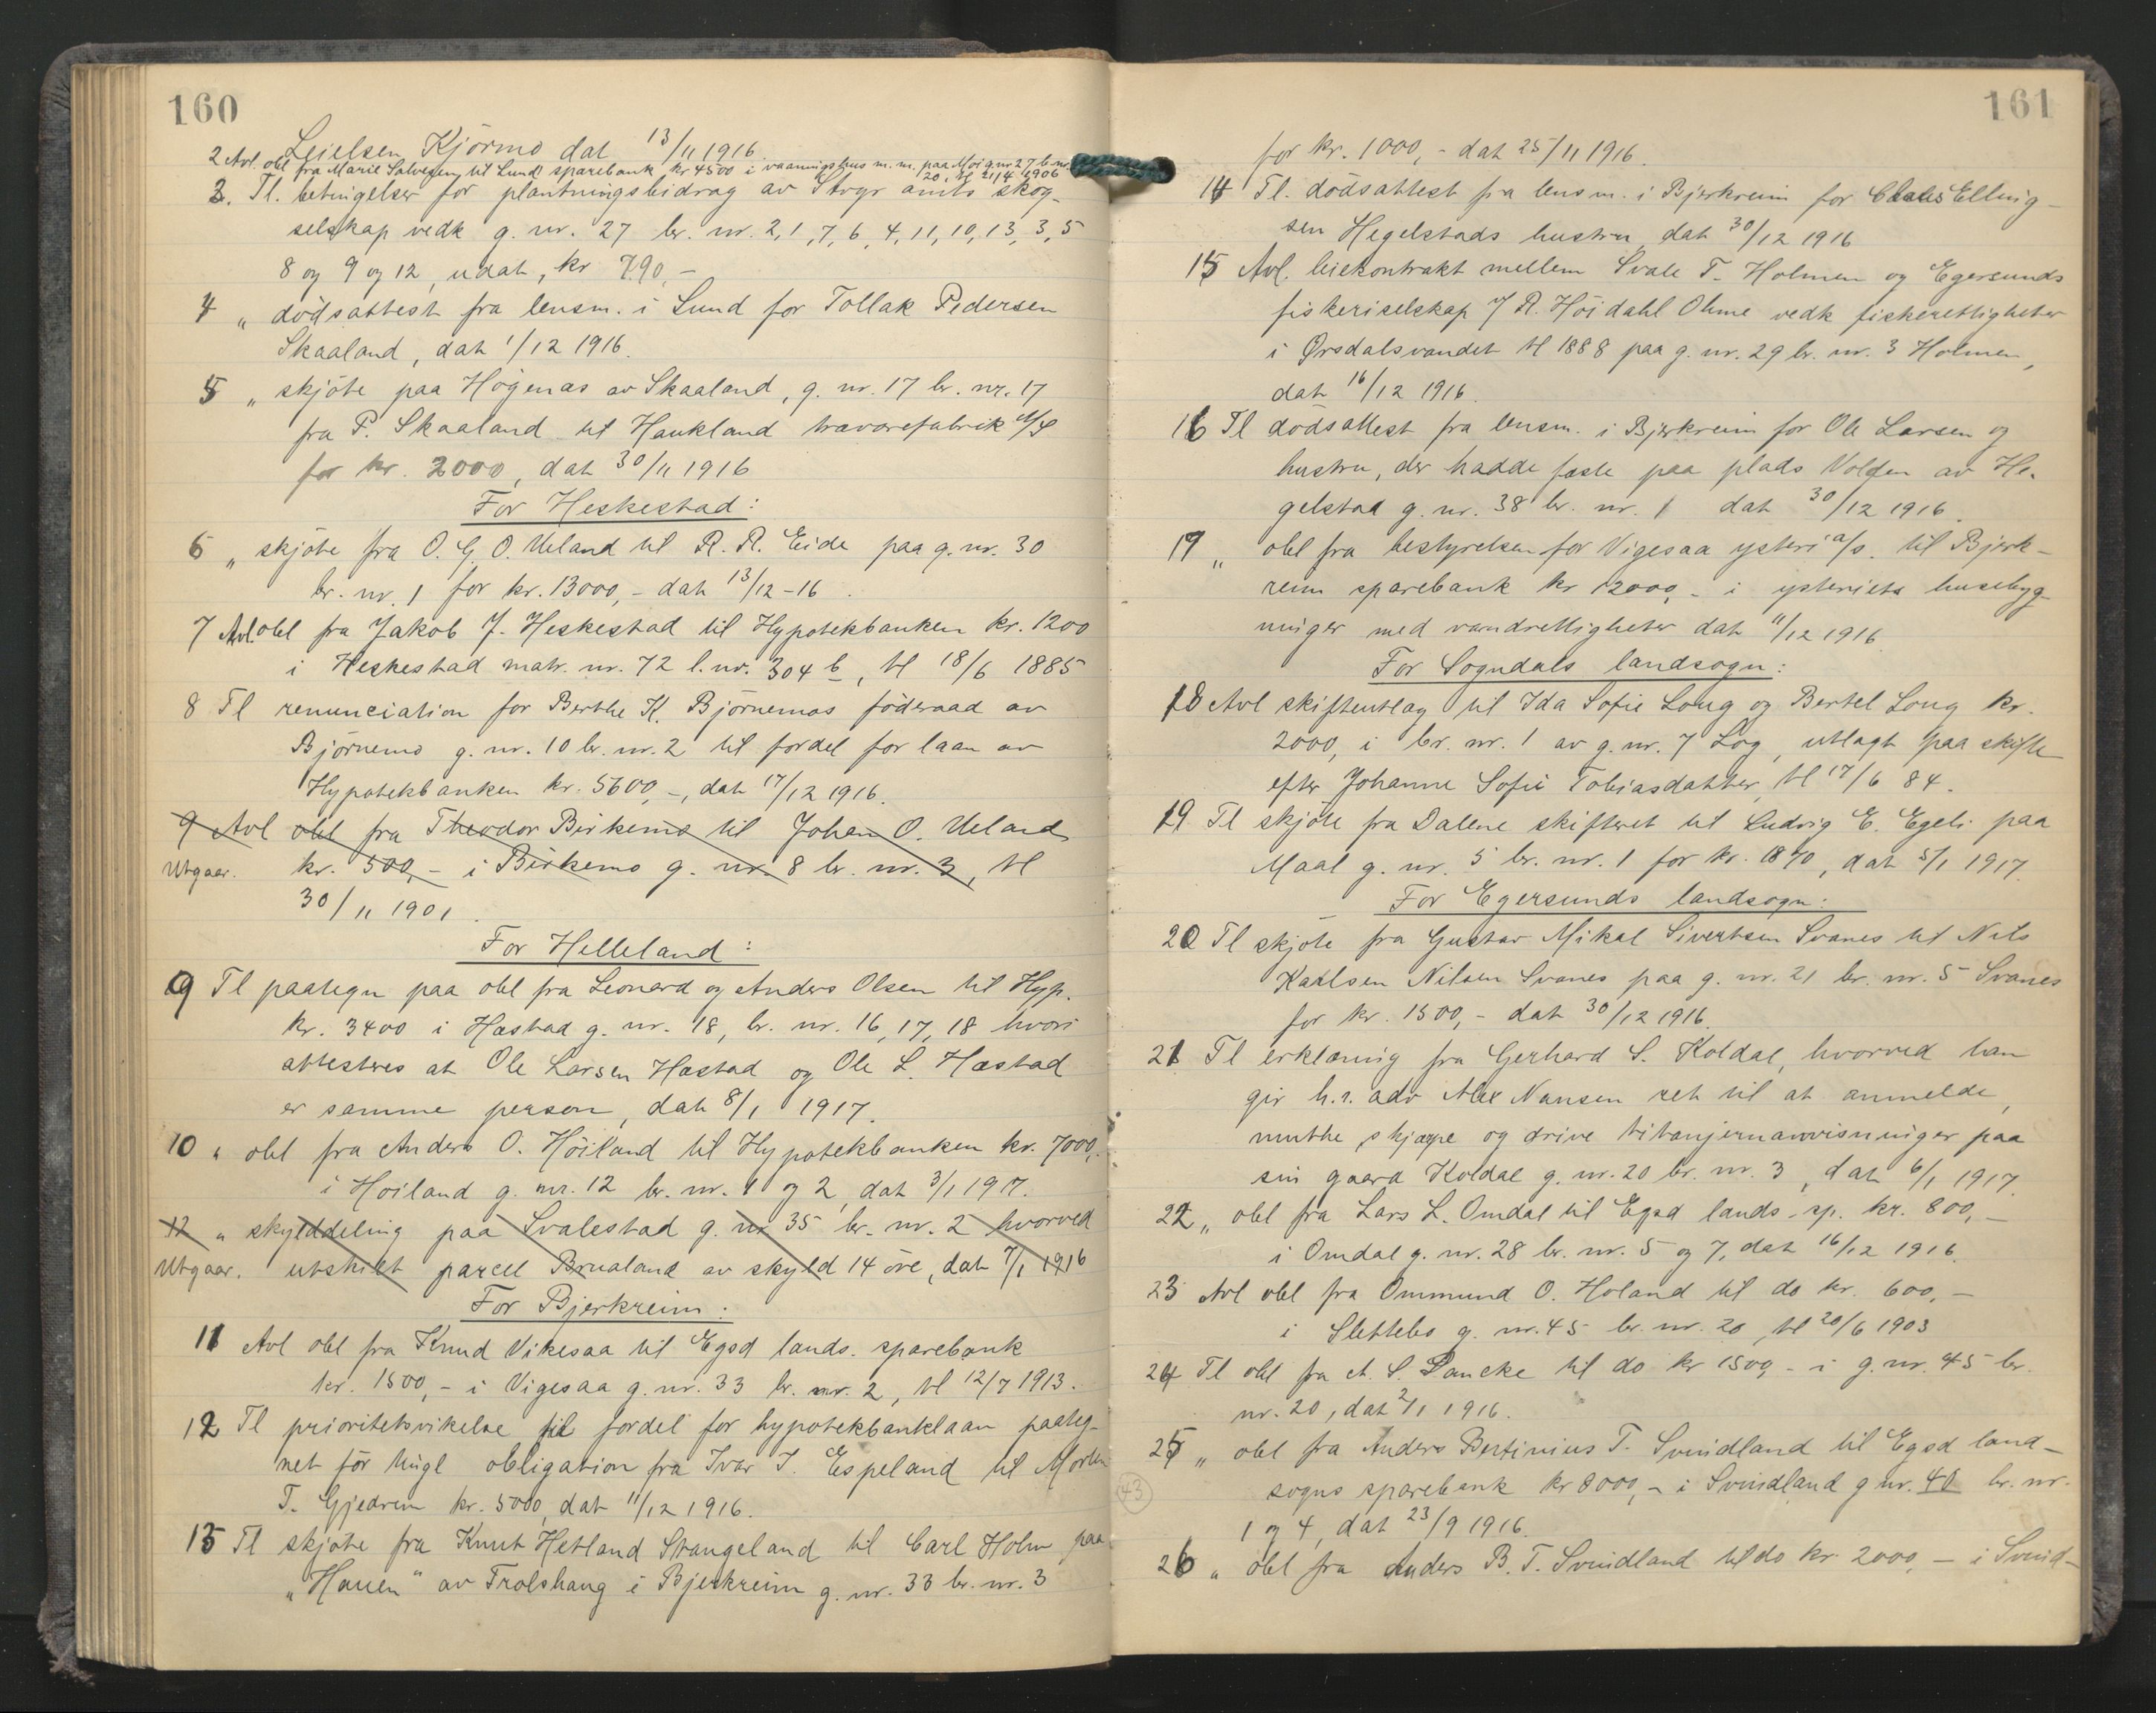 160
Leielsen Kjörmo dat 13/11 1916.
2 Avl. obl fra Marie Salvesen til Lund sparebank kr 4500 i vaaningshus m.m. paa Moi g.nr 27 b.nr.
20, tl 21/4 1906
3. Tl. betingelser for plantningsbidrag av Stvgr amts skog-
selskap vedk g. nr. 27 br. nr. 2, 1, 7, 6, 4, 11, 10, 13, 3, 5
8 og 9 og 12, udat, kr 790,-
4 „ dödsattest fra lensm. i Lund for Tollak Pedersen
Skaaland, dat 1/12 1916.
5 „ skjöte paa Högenas av Skaaland, g. nr. 17 br. nr. 17
fra P. Skaaland til Haukland trævarefabrik A/S
for kr. 2000, dat 30/11 1916
For Heskestad:
6 „ skjöte fra O. G. O. Ueland til R. R. Eide paa g. nr. 30
br. nr. 1 for kr. 13000,- dat 13/12-16.
7 Avl. obl fra Jakob J. Heskestad til Hypotekbanken kr. 1200
i Heskestad matr. nr. 72 l. nr. 304 b, tl 18/6 1885
8 Tl renunciation for Berthe K. Björnemos föderaad av
Björnemo g. nr. 10 br. nr. 2 til fordel for laan av
Hypotekbanken kr. 5600,-, dat 17/12 1916.
9 Avl obl fra Theodor Birkemo til Johan O. Ueland
Utgaar. kr. 500,- i Birkemo g. nr. 8 br. nr. 3, tl
30/11 1901.
For Helleland:
9 Tl paategn paa obl fra Leonard og Anders Olsen til Hyp.
kr. 3400 i Hæstad g. nr. 18, br. nr. 16, 17, 18 hvori
attesteres at Ole Larsen Hæstad og Ole L. Hæstad
er samme person, dat 8/1 1917.
10 „ obl fra Anders O. Höiland til Hypotekbanken kr. 7000,-
i Höiland g. nr. 12 br. nr. 1 og 2, dat 3/1 1917.
12 „ skylddeling paa Svalestad g. nr 35 br. nr. 2 hvorved
Utgaar. utskilt parcel Brualand av skyld 14 öre, dat 7/1 1916
For Bjerkreim:
11 Avl obl fra Knud Vikesaa til Egsd lands. sparebank
kr. 1500,- i Vigesaa g. nr. 33 br. nr. 2, tl 12/7 1913.
12 Tl prioritetsvikelse til fordel for hypotekbanklaan paateg-
net för tingl obligation fra Ivar I. Espeland til Morten
T. Gjedrem kr. 5000, dat 11/12 1916.
13 Tl skjöte fra Knut Hetland Stangeland til Carl Holm paa
„Hauen" av Trolshaug i Bjerkreim g. nr. 33 br. nr. 3
161
for kr. 1000,- dat 25/11 1916.
14 Tl. dödsattest fra lensm. i Bjerkreim for Elling-
sen Hegelstads hustru, dat 30/12 1916
15 Avl. leiekontrakt mellem Svale T. Holmen og Egersunds
fiskeriselskap / R. Höidahl Ohme vedk fiskerettigheter
i Ørsdalsvandet tl 1888 paa g. nr. 29 br. nr. 3 Holmen,
dat 16/12 1916.
16 Tl dödsattest fra lensm. i Bjerkreim for Ole Larsen og
hustru, der hadde fæste paa plads Volden av He-
gelstad g. nr. 38 br. nr. 1 dat 30/12 1916.
17 „ obl fra bestyrelsen for Vigesaa ysteri a/s. til Bjerk-
reim sparebank kr 12000,- i ysteriets husebyg-
ninger med vandrettigheter dat 11/12 1916
For Sogndals landsogn:
18 Avl skifteutlæg til Ida Sofie Loug og Bertel Loug kr.
2000, i br. nr. 1 av g. nr. 7 Log, utlagt paa skifte
efter Johanne Sofie Tobiasdatter, tl 17/6 84.
19 Tl skjöte fra Dalene skifteret til Ludvig E. Egeli paa
Maal g. nr. 5 br. nr. 1 for kr. 1870, dat 5/1 1917.
For Egersunds landsogn:
20 Tl skjöte fra Gustav Mikal Sivertsen Svanes til Nils
Karlsen Nilsen Svanes paa g. nr. 21 br. nr. 5 Svanes
for kr. 1500,- dat 30/12 1916.
21 Tl erklæring fra Gerhard S. Koldal, hvorved han
gir h.r. adv Alex Nansen ret til at anmelde,
muthe, skjærpe og drive titanjernanvisninger paa
sin gaard Koldal g. nr. 20 br. nr. 3, dat 6/1 1917.
22 „ obl fra Lars L. Omdal til Egsd lands. sp. kr. 800,-
i Omdal g. nr. 28 br. nr. 5 og 7, dat 16/12 1916.
23 Avl obl fra Ommund O. Holand til do kr. 600,-
i Slettebö g. nr. 45 br. nr. 20, tl 20/6 1903
24 Tl obl fra A. S. Lancke til do kr 1500,- i g. nr. 45 br.
nr. 20, dat 2/1 1916.
25 „ obl fra Anders Bertinius T. Svindland til Egsd land-
sogns sparebank kr 8000,- i Svindland g nr. 40 br. nr.
43
1 og 4, dat 23/9 1916.
26 „ obl fra Anders B. T. Svindland til do kr. 2000,- i Svind-